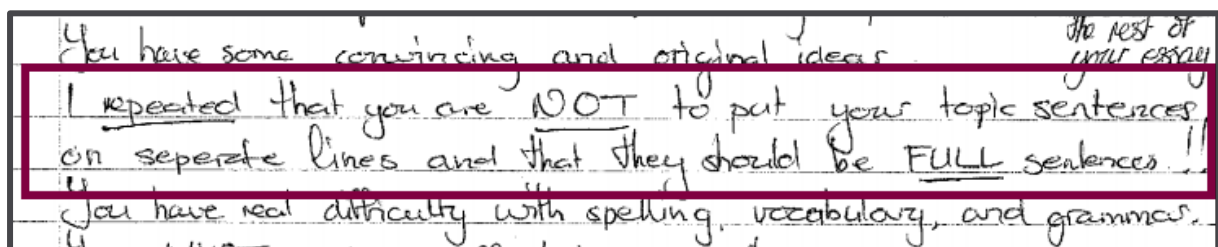 the rest of
You have some convincing and original ideas your essay
I repeated that you are NOT to put your topic sentences
on seperate lines and that they should be FULL sentences!!
You have real difficulty with spelling, vocabulary, and grammar.